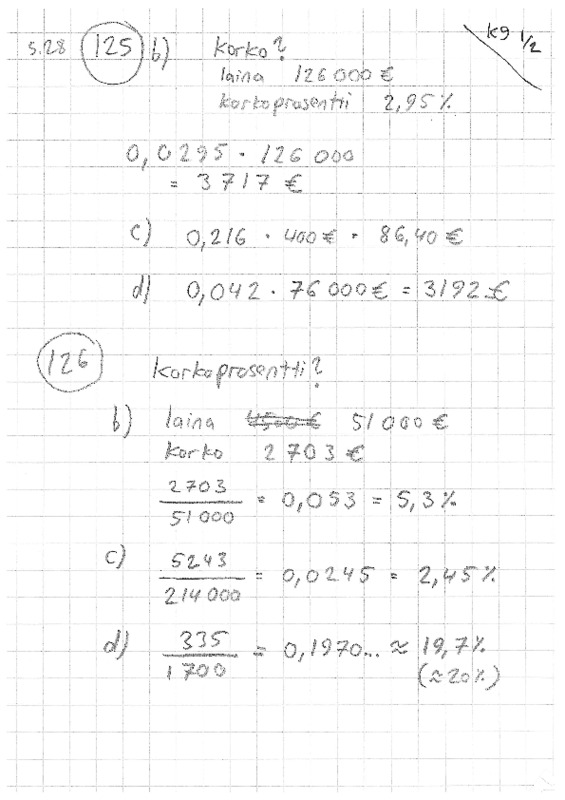 K9 1/2
5.28 125 b) Korko?
laina 126 000 €
korkoprosentti 2,95 %
0,0295 · 126 000
= 3717 €
c) 0,216 · 400 € = 86,40 €
d) 0,042 · 76 000 € = 3192 €
126 Korkoprosentti?
b) laina 4500 € 51 000 €
korko 2 703 €
2703
51 000
= 0,053 = 5,3 %
c) 5243
214 000
= 0,0245 = 2,45 %
d) 335
1700
= 0,1970... ≈ 19,7 %
(≈ 20 %)